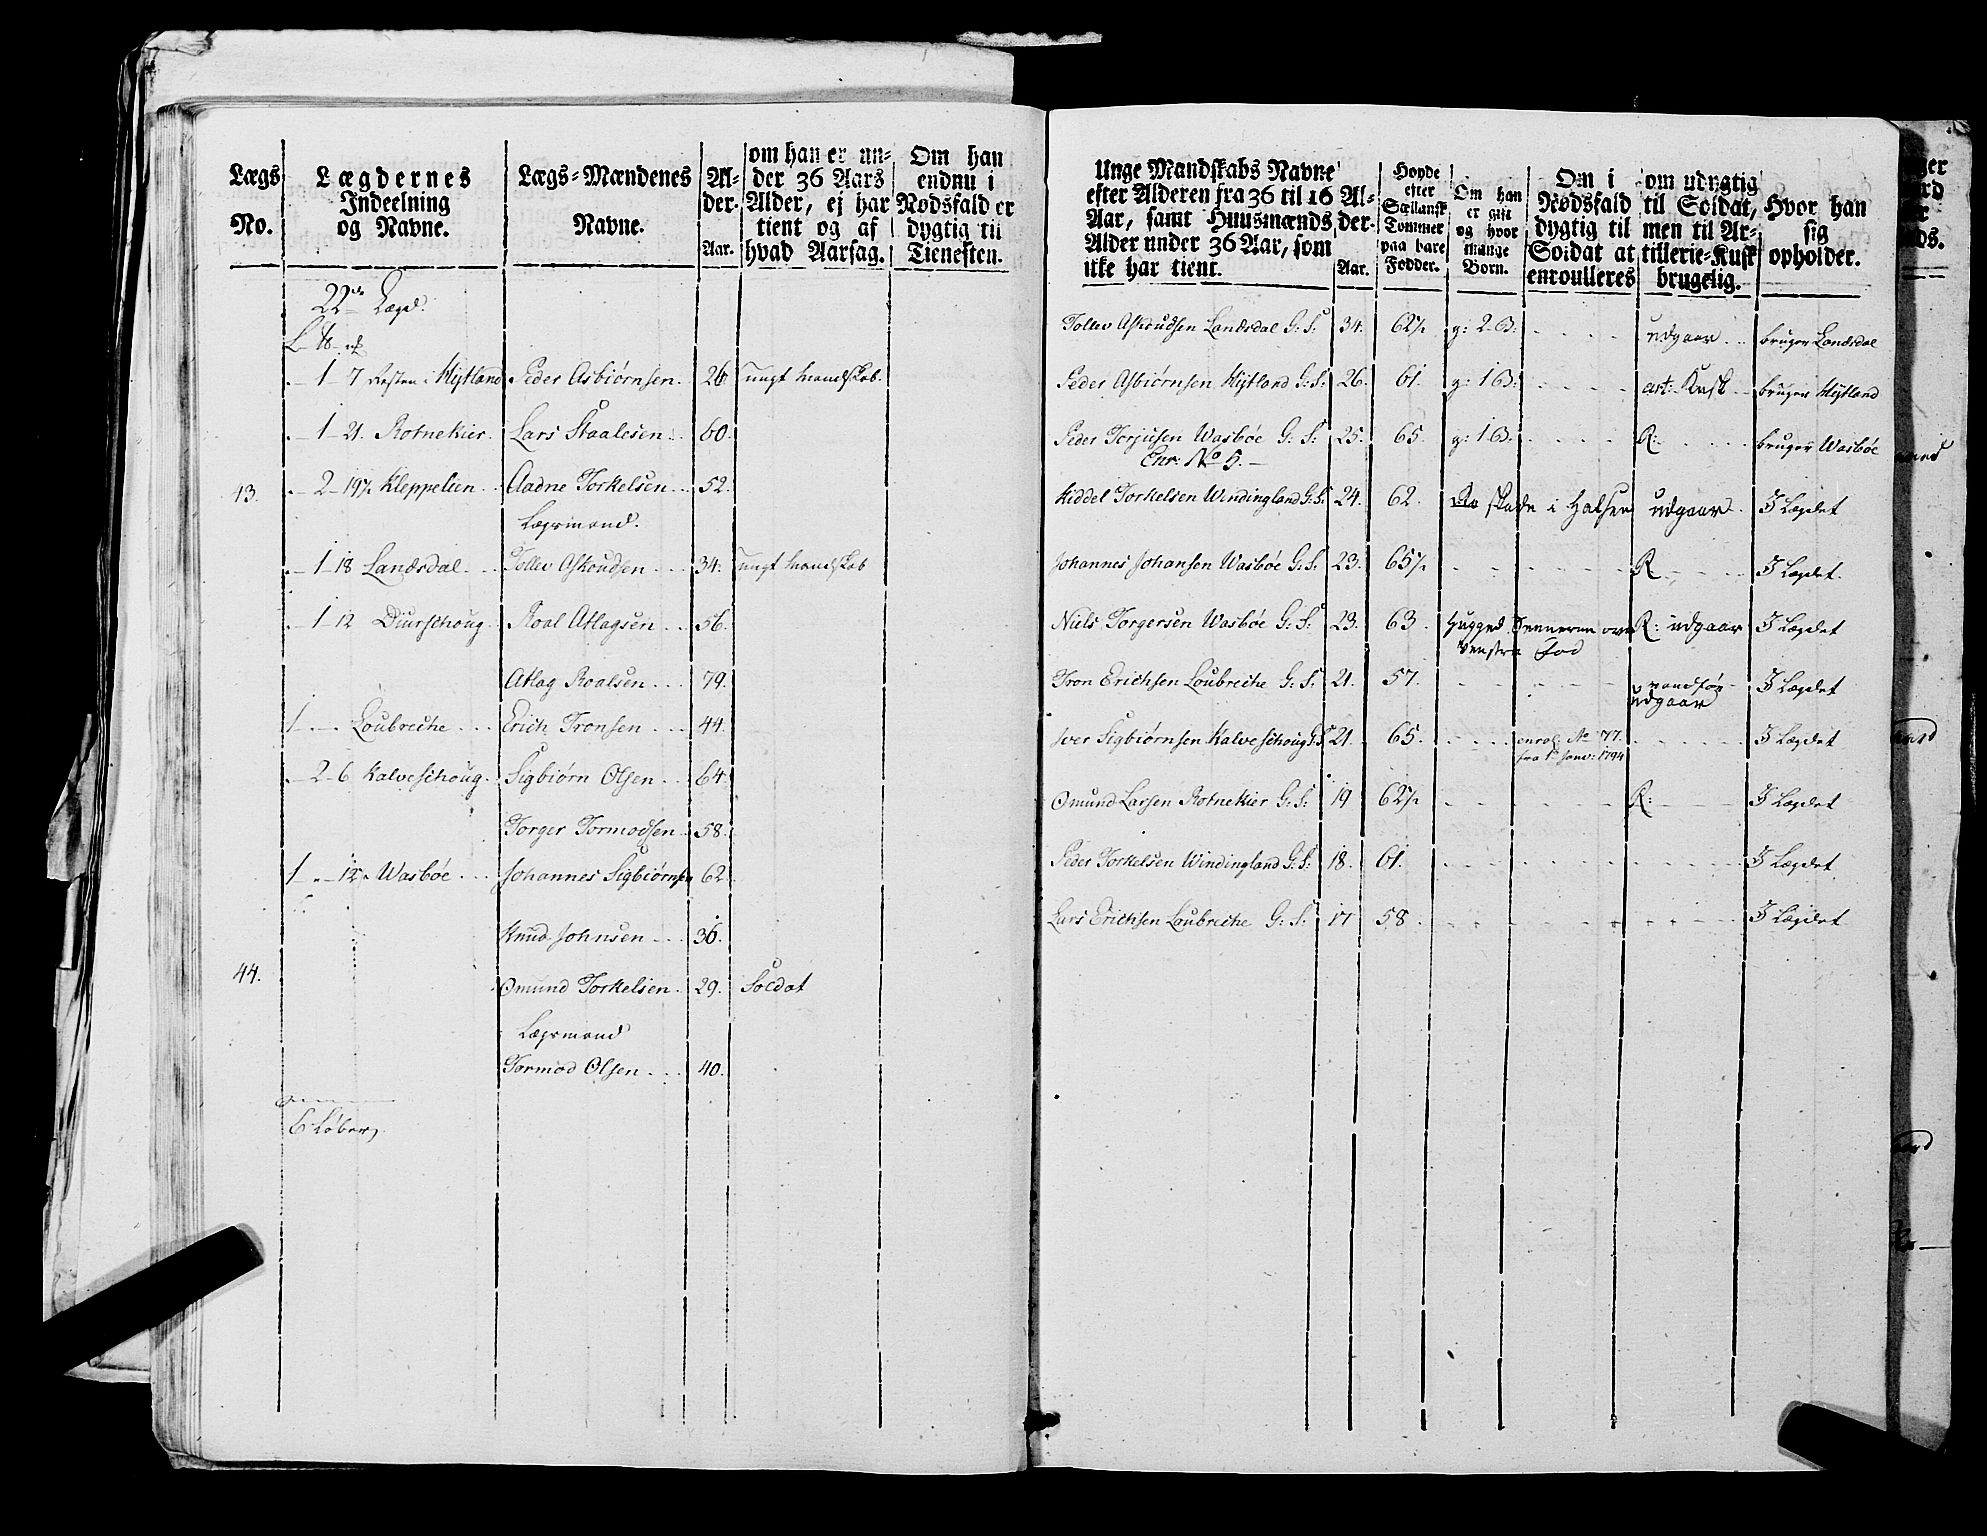 Lægs No.
Lægdernes Indeelning og Navne.
Lægs-Mændenes Navne.
Al-der. Aar.
om han er un-der 36 Aars Alder, ej har tient og af hvad Aarsag.
Om han endnu i Nødsfald er dygtig til Tienesten.
22de Lægd.
L ℔ rf
1 - 7 Resten i Hÿtland Peder Asbiørnsen. 26 ungt Mandskab.
1 - 21. Rotnekier. Lars Staalesen. 60.
13. 2 - 19½ Kleppelien Aadne Torkelsen 52.
Lægsmand.
1 - 18 Landsdal Tollev Askoudsen 34. ungt Mandskab
1 - 12 Diurschoug Roal Atlagsen 56.
Atlag Roalsen 79.
1 - - Loubreche Erich Tronsen 44.
2 - 6 Kalveschoug Sigbiørn Olsen 64.
Torger Tormodsen 58.
1 - 12 Wasbøe Johannes Sigbiørnsen 62.
Knud Johnsen 36.
44. Omund Torkelsen 29. Soldat
Lægsmand
Tormod Olsen 40.
6 Løber
Unge Mandskabs Navne efter Alderen fra 36 til 16 Aar, samt Huusmænds Alder under 36 Aar, som ikke har tient.
Al-der. Aar.
Høyde efter Sællansk Tommer paa bare Fødder.
Om han er gift og hvor mange Børn.
Om i Nødsfald dygtig til Soldat at enroulleres
om udygtig til Soldat, men til Ar-tillerie-Kusk brugelig.
Hvor han sig opholder.
Tollev Askoudsen Landsdal G: S: 34. 62½ g: 2 B: udgaar bruger Landsdal
Peder Asbiørnsen Hÿtland G: S: 26. 61. g: 1 B: art: Kusk bruger Hÿtland
Peder Torjusen Wasbøe G: S: 25. 65. g: 1 B: R: bruger Wasbøe
Enr: No 5.
Kiddel Torkelsen Windingland G: S: 24. 62. skade i Halsen udgaar I Lægdet
Johannes Johansen Wasbøe G: S: 23. 65½ R I Lægdet.
Niels Torgersen Wasbøe G: S: 23. 63. hugged Sennerne over R: udgaar I Lægdet
venstre fod
Tron Erichsen Loubreche G: S: 21. 57. vandfør I Lægdet
udgaar
Iver Sigbiørnsen Kalveschoug G: S: 21. 65. enrol. No 77. I Lægdet
fra 1 Janv: 1794
Omund Larsen Rotnekier G: S: 19 62½ R: I Lægdet
Peder Torkelsen Windingland G: S: 18. 61. I Lægdet.
Lars Erichsen Loubreche G: S: 17 58. I Lægdet